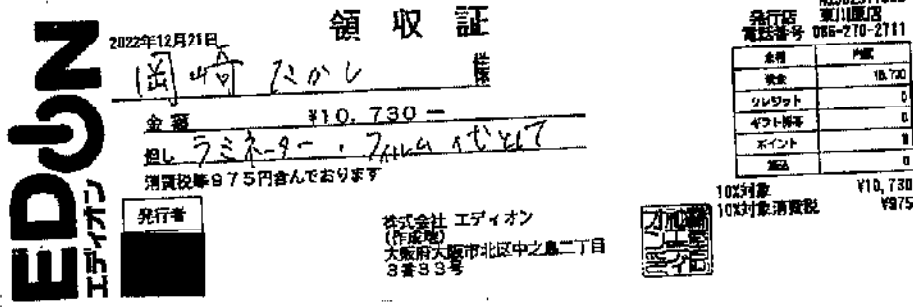 EDION
エディオン
領収証
2022年12月21日
岡崎 たかし 様
金額 ¥10,730-
但し ラミネーター・フィルム代として
消費税等975円含んでおります
発行者
株式会社 エディオン
(作成地)
大阪府大阪市北区中之島二丁目
3番33号
発行店 東川原店
電話番号 086-270-2711
金種 内訳
現金 10,730
クレジット 0
ギフト券等 0
ポイント 0
0
10%対象 ¥10,730
10%対象消費税 ¥975